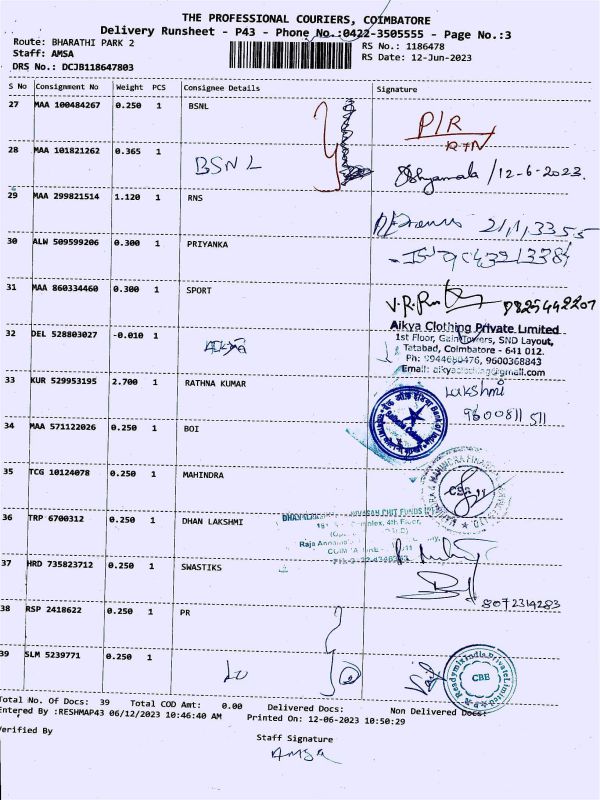 THE PROFESSIONAL COURIERS, COIMBATORE
Delivery Runsheet - P43 - Phone No.:0422-3505555 - Page No.:3
Route: BHARATHI PARK 2
RS No.: 1186478
Staff: AMSA
RS Date: 12-Jun-2023
DRS No.: DCJB118647803
S No Consignment No Weight PCS Consignee Details Signature
27 MAA 100484267 0.250 1 BSNL
P/R
RTN
28 MAA 101821262 0.365 1 BSNL
Shyamala /12-6-2023.
29 MAA 299821514 1.120 1 RNS
30 ALW 509599206 0.300 1 PRIYANKA
31 MAA 860334460 0.300 1 SPORT
Aikya Clothing Private Limited
1st Floor, Towers, SND Layout,
Tatabad, Coimbatore - 641 012.
Ph: 9600368843
32 DEL 528803027 -0.010 1
33 KUR 529953195 2.700 1 RATHNA KUMAR
Lakshmi
9600811 511
34 MAA 571122026 0.250 1 BOI
35 TCG 10124078 0.250 1 MAHINDRA
36 TRP 6700312 0.250 1 DHAN LAKSHMI
CHIT FUNDS
4th Floor,
37 HRD 735823712 0.250 1 SWASTIKS
8072314283
38 RSP 2418622 0.250 1 PR
39 SLM 5239771 0.250 1
Readymix India Private Limited
CBE
Total No. Of Docs: 39 Total COD Amt: 0.00 Delivered Docs: Non Delivered Docs:
Entered By :RESHMAP43 06/12/2023 10:46:40 AM Printed On: 12-06-2023 10:50:29
Verified By
Staff Signature
AMSA